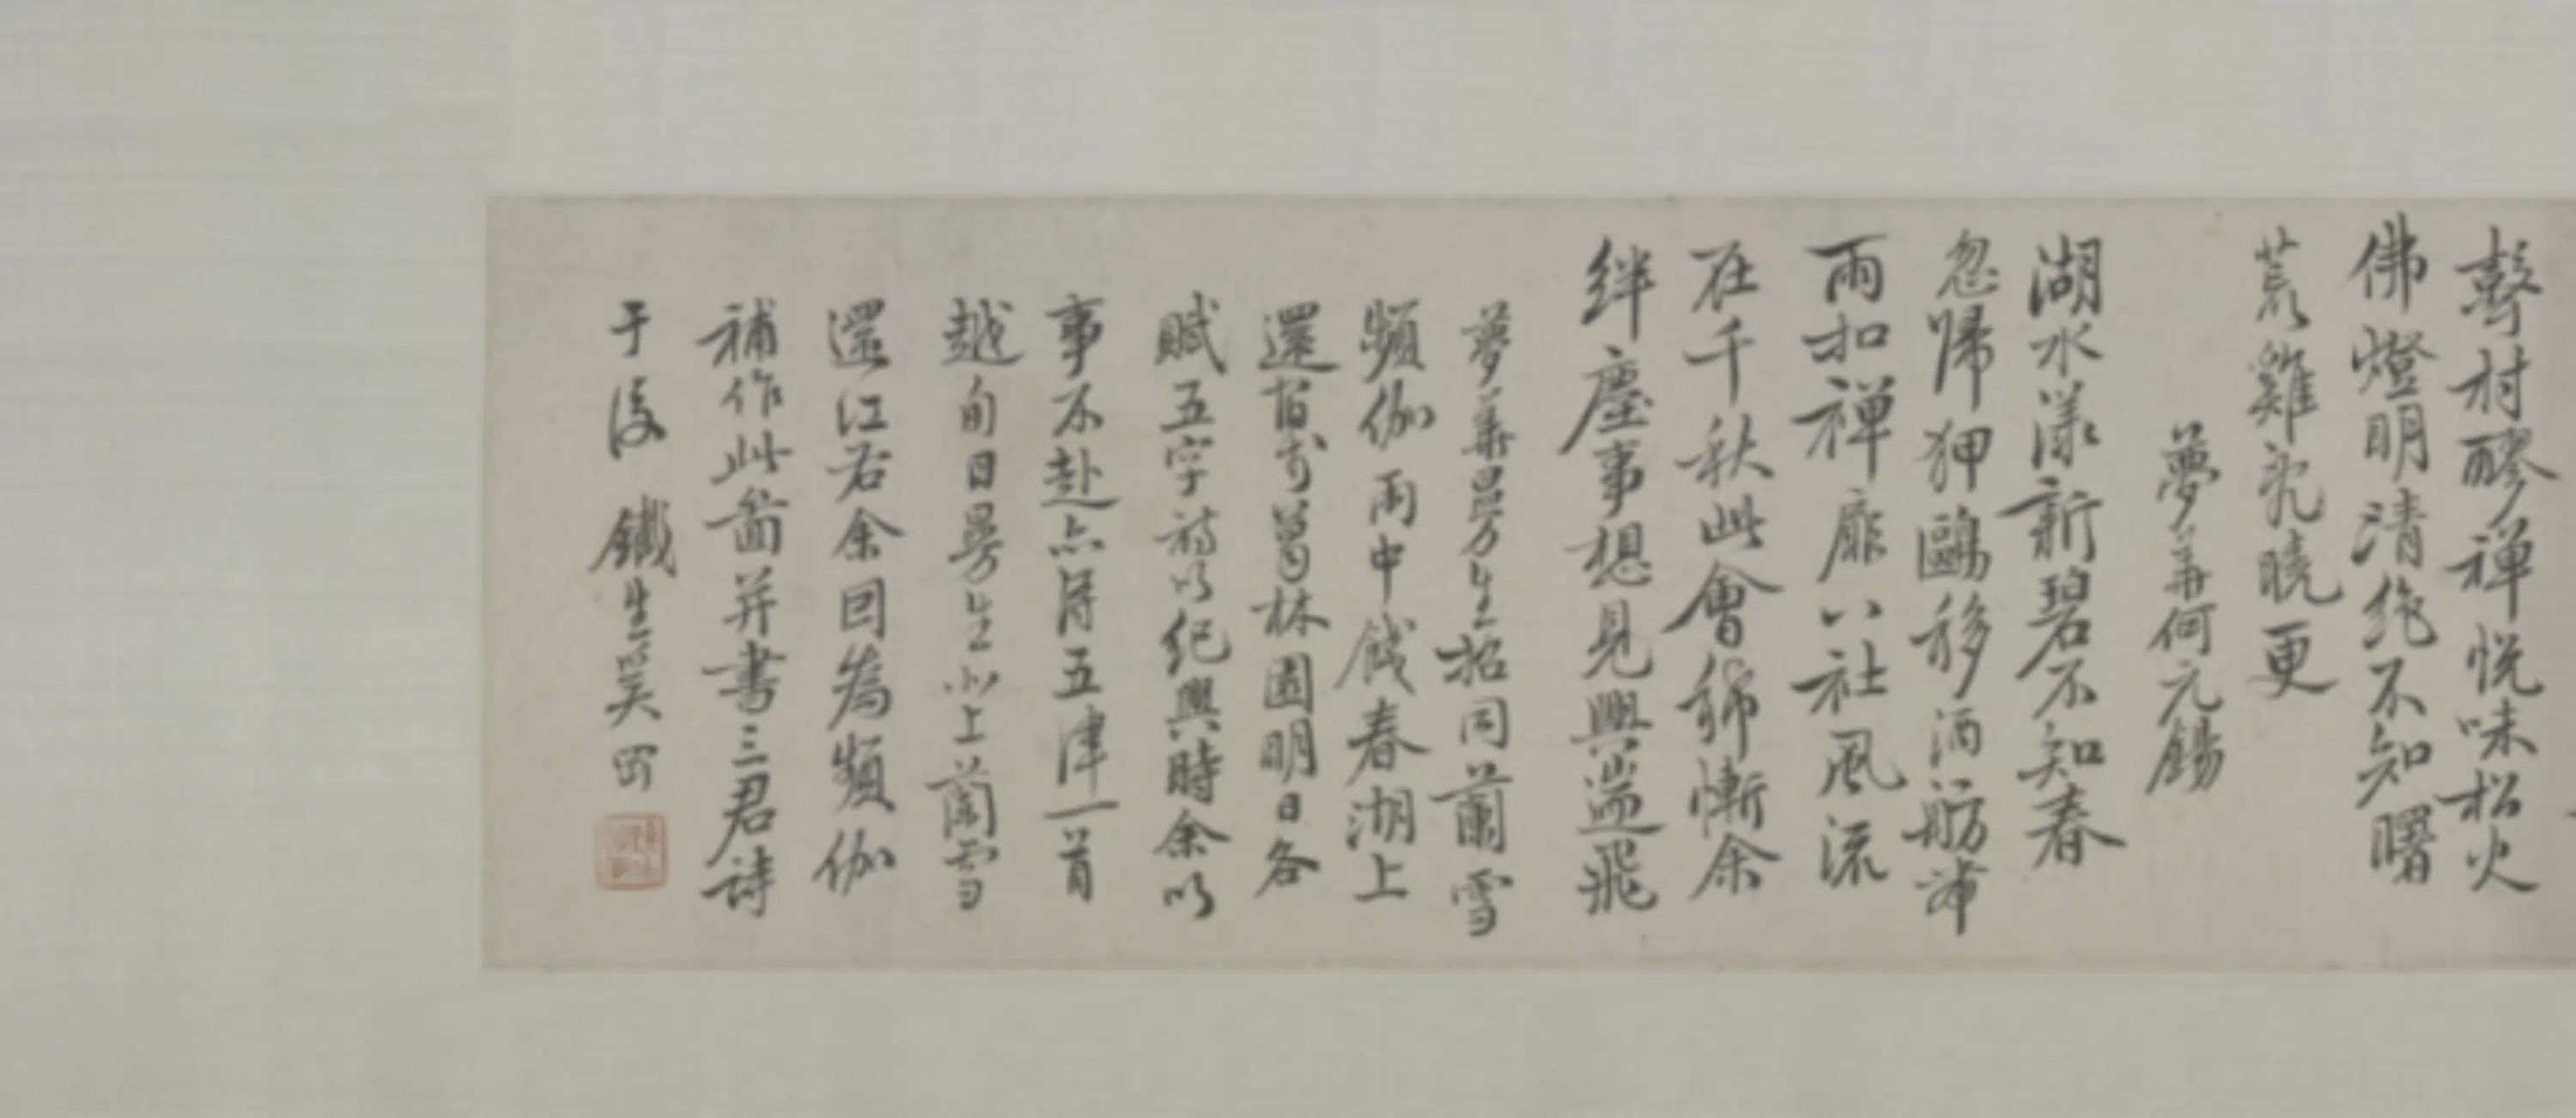 聲村醪禪悅味松火
佛燈明清絶不知曙
荒雞況曉更
夢華何元錫
湖水漾新碧不知春
忽歸狎鷗移酒舫
雨扣禪扉八社風流
在千秋此會稀慚余
絆塵事想見興遄飛
夢華曼生招同蘭雪
頻伽雨中餞春湖上
還宿葛林園明日各
賦五字詩以紀興時余以
事不赴亦得五律一首
越旬日曼生北上蘭雪
還江右余因為頻伽
補作此啚并書三君詩
于後 鐵生奚岡